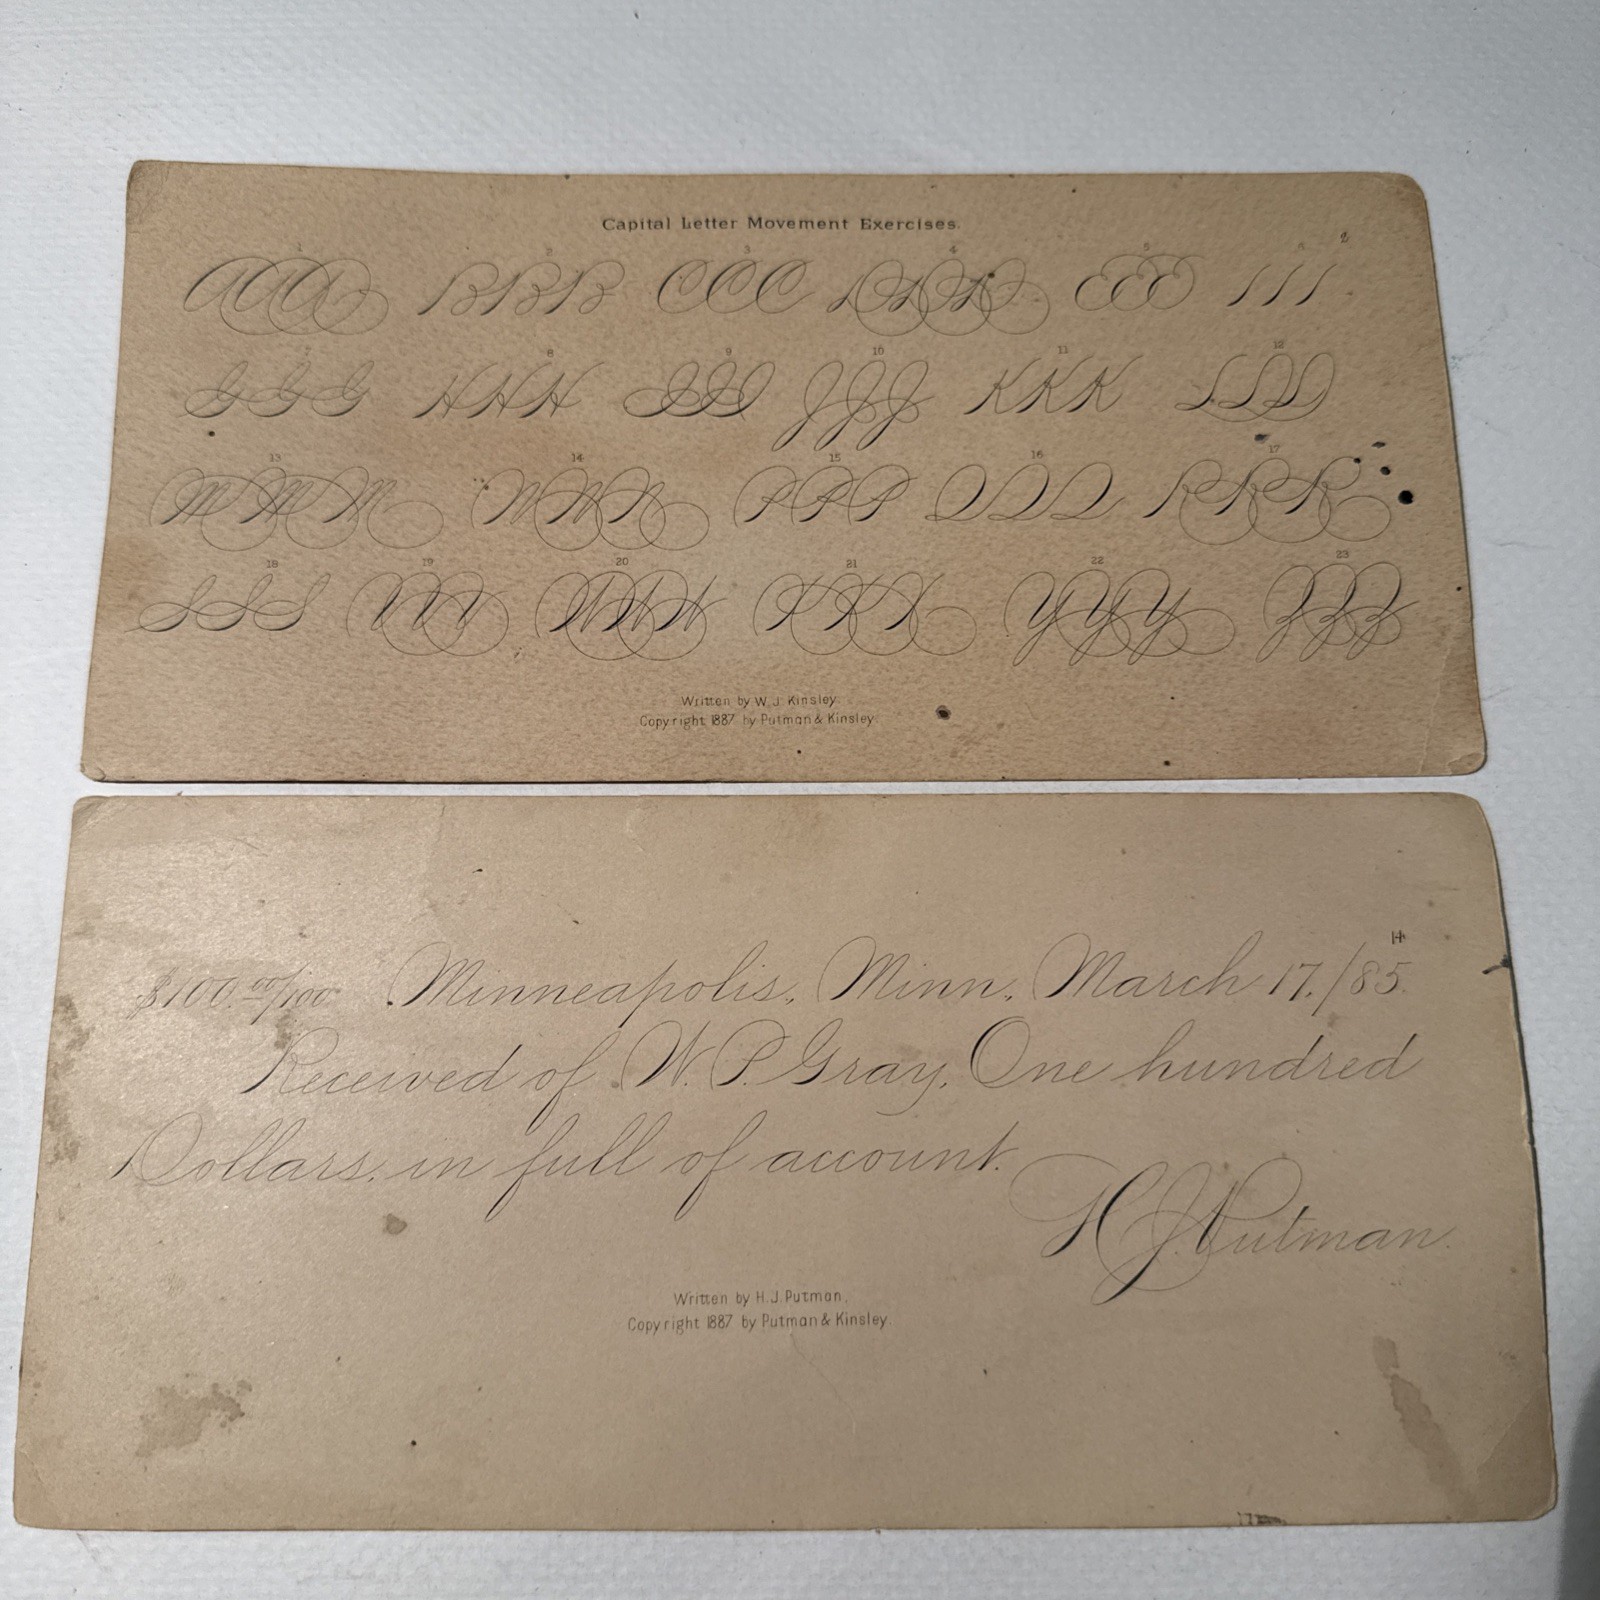 Capital Letter Movement Exercises.
1 2 3 4 5
AAA BBB CCC DDD EEE
7 8 9 10 11 12
GGG HHH III JJJ KKK LLL
13 14 15 16 17
MMM NNN PPP QQQ RRR
18 19 20 21 22 23
SSS VVV WWW XXX YYY ZZZ
Written by W. J. Kinsley.
Copyright 1887 by Putman & Kinsley.
14
$100.00/100 Minneapolis, Minn, March 17, /85.
Received of W. P. Gray, One hundred
Dollars, in full of account.
H J Putman.
Written by H. J. Putman,
Copyright 1887 by Putman & Kinsley.